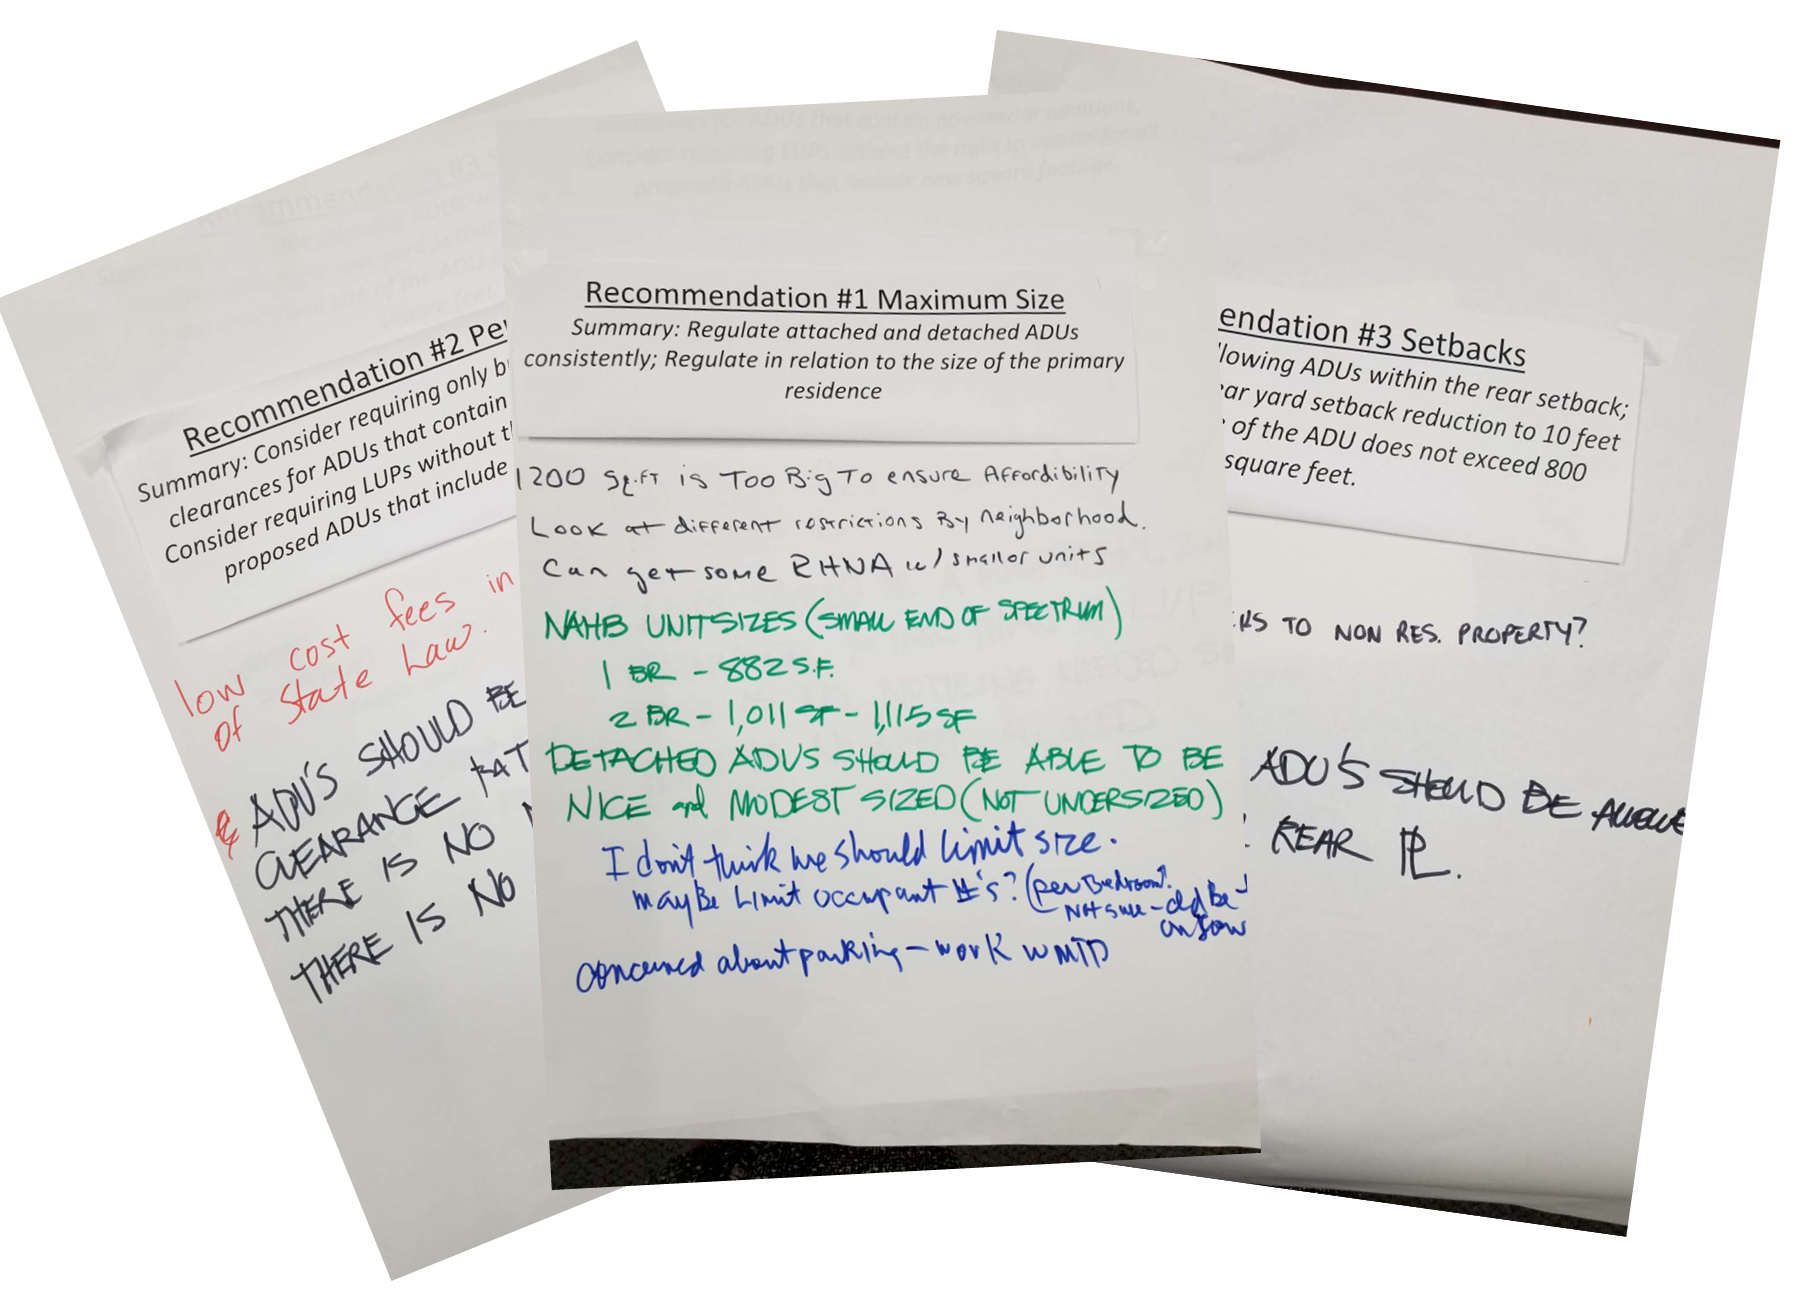 Recommendation #2
Summary: Consider requiring only
clearances for ADUs that contain
Consider requiring LUPs without
proposed ADUs that include
low cost fees in
of State Law.
& ADU'S SHOULD BE
CLEARANCE
THERE IS NO
THERE IS NO
Recommendation #1 Maximum Size
Summary: Regulate attached and detached ADUs
consistently; Regulate in relation to the size of the primary
residence
1200 Sq.FT is Too Big To ensure Affordibility
Look at different restrictions By neighborhood.
Can get some RHNA w/ smaller units
NAHB UNIT SIZES (SMALL END OF SPECTRUM)
1 BR - 882 S.F.
2 BR - 1,011 SF - 1,115 SF
DETACHED ADUS SHOULD BE ABLE TO BE
NICE and MODEST SIZED (NOT UNDERSIZED)
I don't think we should limit size.
maybe Limit occupant #'s? (per Bedroom?
Not sure -
concerned about parking - work w MTD
#3 Setbacks
ADUs within the rear setback;
yard setback reduction to 10 feet
of the ADU does not exceed 800
square feet.
TO NON RES. PROPERTY?
ADU'S SHOULD BE
REAR PL.